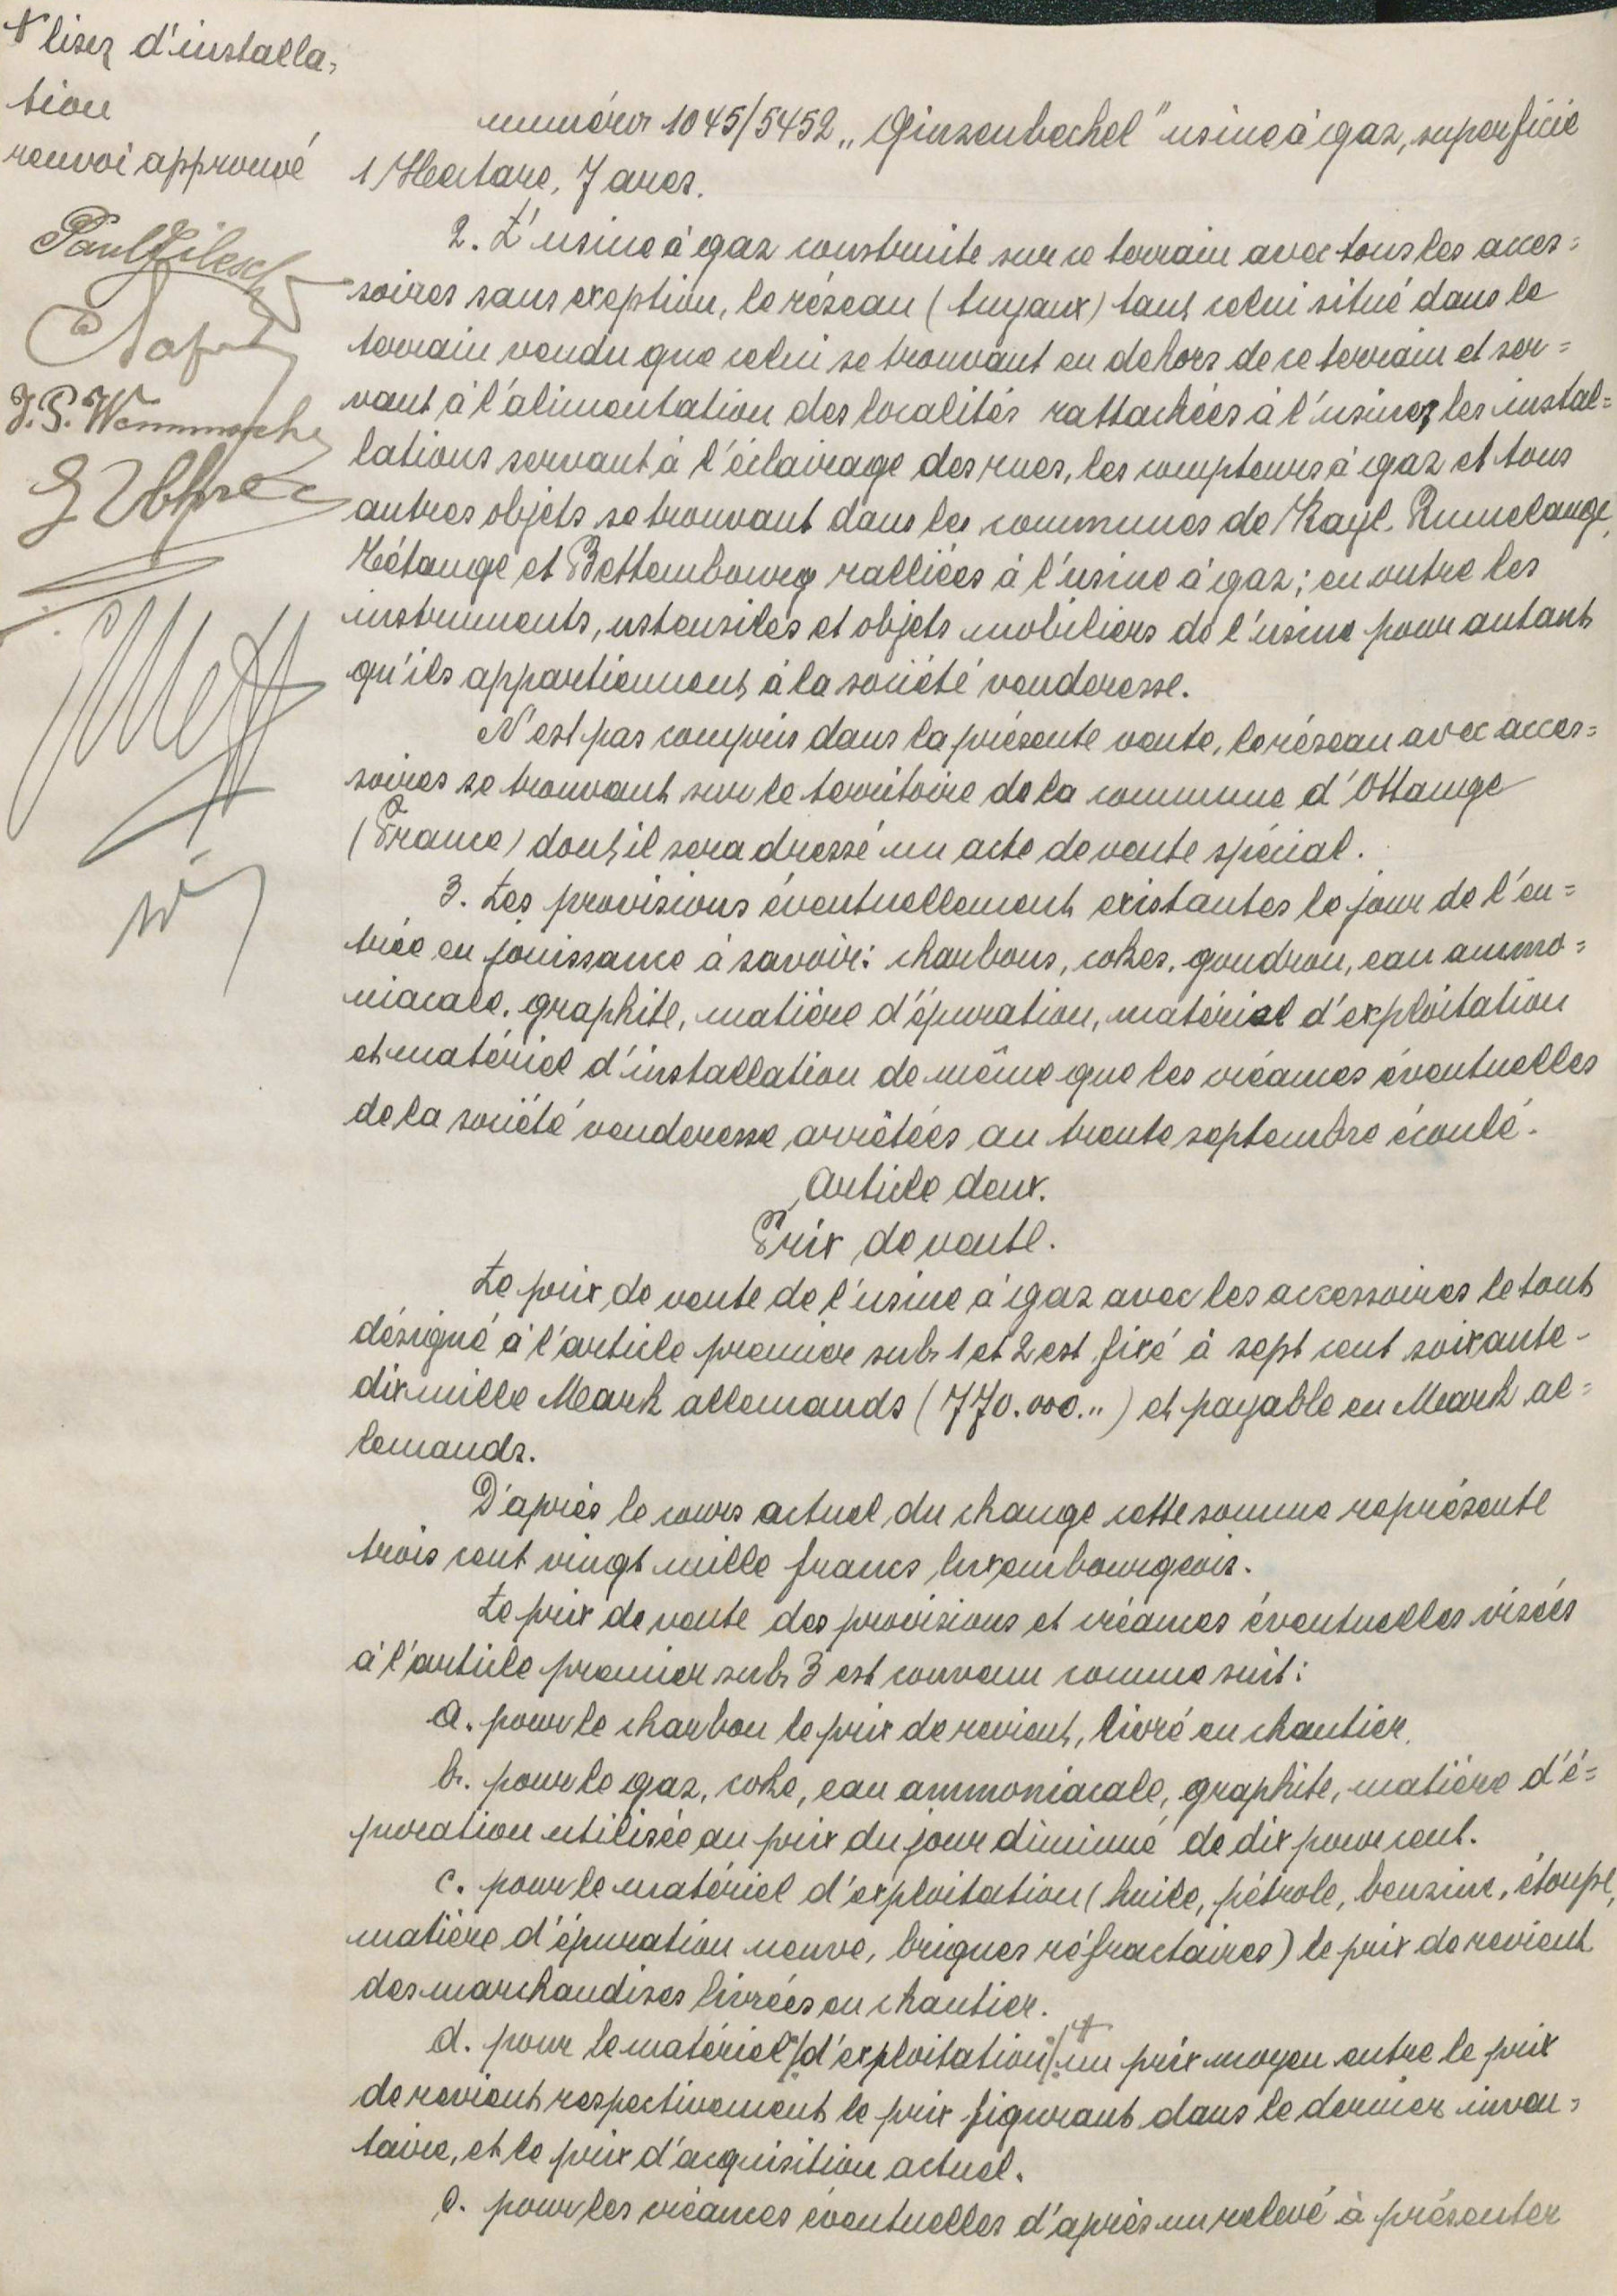 + lisez d'installa=
tion
renvoi approuvé
Paul
J.P.
numéro 1045/5452 „Ginzenbechel" usine à gaz, superficie
1 Hectare, 7 ares.
2. L'usine à gaz construite sur ce terrain avec tous les acces=
soires sans exeption, le réseau (tuyaux) tant celui situé dans le
terrain vendu que celui se trouvant en dehors de ce terrain et ser=
vant à l'alimentation des localités rattachées à l'usine, les instal=
lations servant à l'éclairage des rues, les compteurs à gaz et tous
autres objets se trouvant dans les communes de Kayl, Rumelange,
Tétange et Bettembourg ralliées à l'usine à gaz; en outre les
instruments, ustensiles et objets mobiliers de l'usine pour autant
qu'ils appartiennent à la société venderesse.
N'est pas compris dans la présente vente, le réseau avec acces=
soires se trouvant sur le territoire de la commune d'Ottange
(France) dont il sera dressé un acte de vente spécial.
3. Les provisions éventuellement existantes le jour de l'en=
trée en jouissance à savoir: charbons, cokes, goudron, eau ammo=
niacale, graphite, matière d'épuration, matériel d'exploitation
et matériel d'installation de même que les créances éventuelles
de la société venderesse arrêtées au trente septembre écoulé.
Article deux.
Prix de vente.
Le prix de vente de l'usine à gaz avec les accessoires le tout
désigné à l'article premier sub 1 et 2 est fixé à sept cent soixante-
dix mille Mark allemands (770.000.,,) et payable en Mark al=
lemands.
D'après le cours actuel du change cette somme représente
trois cent vingt mille francs luxembourgeois.
Le prix de vente des provisions et créances éventuelles visées
à l'article premier sub 3 est convenu comme suit:
a. pour le charbon le prix de revient, livré en chantier.
b. pour le gaz, coke, eau ammoniacale, graphite, matière d'é=
puration utilisée au prix du jour diminué de dix pour cent.
c. pour le matériel d'exploitation (huile, pétrole, benzine, étoupe,
matière d'épuration neuve, briques réfractaires) le prix de revient
des marchandises livrées en chantier.
d. pour le matériel /d'exploitation/ + un prix moyen entre le prix
de revient respectivement le prix figurant dans le dernier inven=
taire, et le prix d'acquisition actuel.
e. pour les créances éventuelles d'après un relevé à présenter